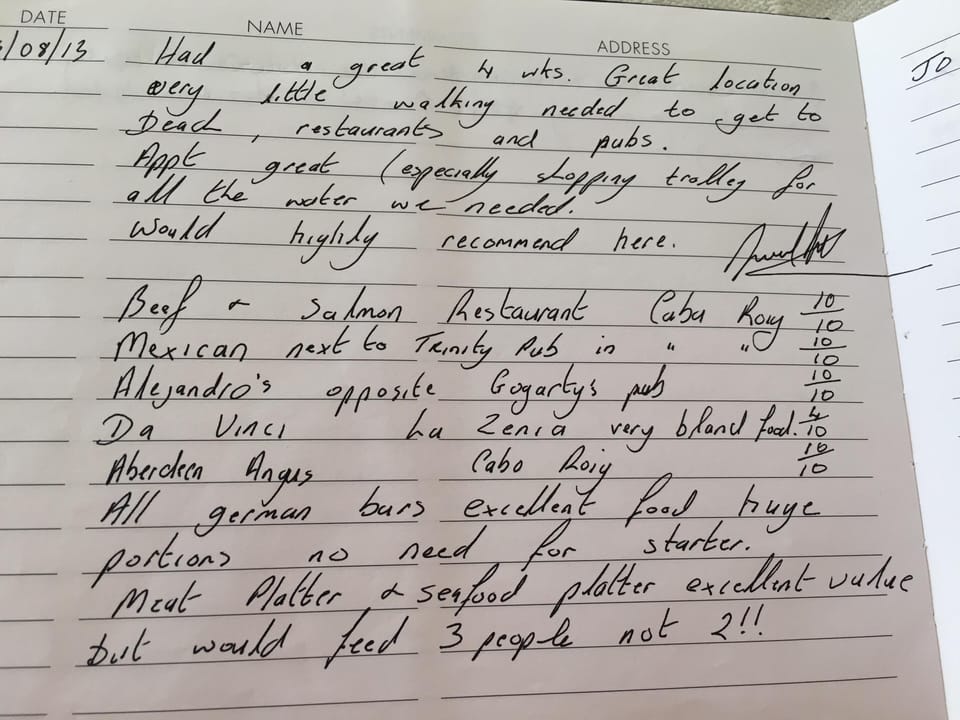 DATE NAME ADDRESS
/08/13 Had a great 4 wks. Great location JO
very little walking needed to get to
Beach, restaurants and pubs.
Appt great (especially shopping trolley for
all the water we needed.
Would highly recommend here.
Beef & Salmon Restaurant Cabo Roig 10/10
Mexican next to Trinity Pub in " " 10/10
Alejandro's opposite Gogarty's pub 10/10
Da Vinci La Zenia very bland food. 4/10
Aberdeen Angus Cabo Roig 10/10
All german bars excellent food huge
portions no need for starter.
Meat Platter & seafood platter excellent value
but would feed 3 people not 2!!